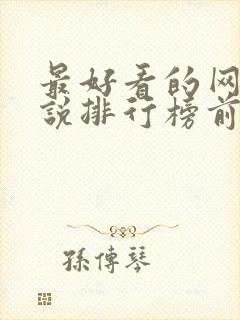 最好看的网
说排行榜前
孫傅琴